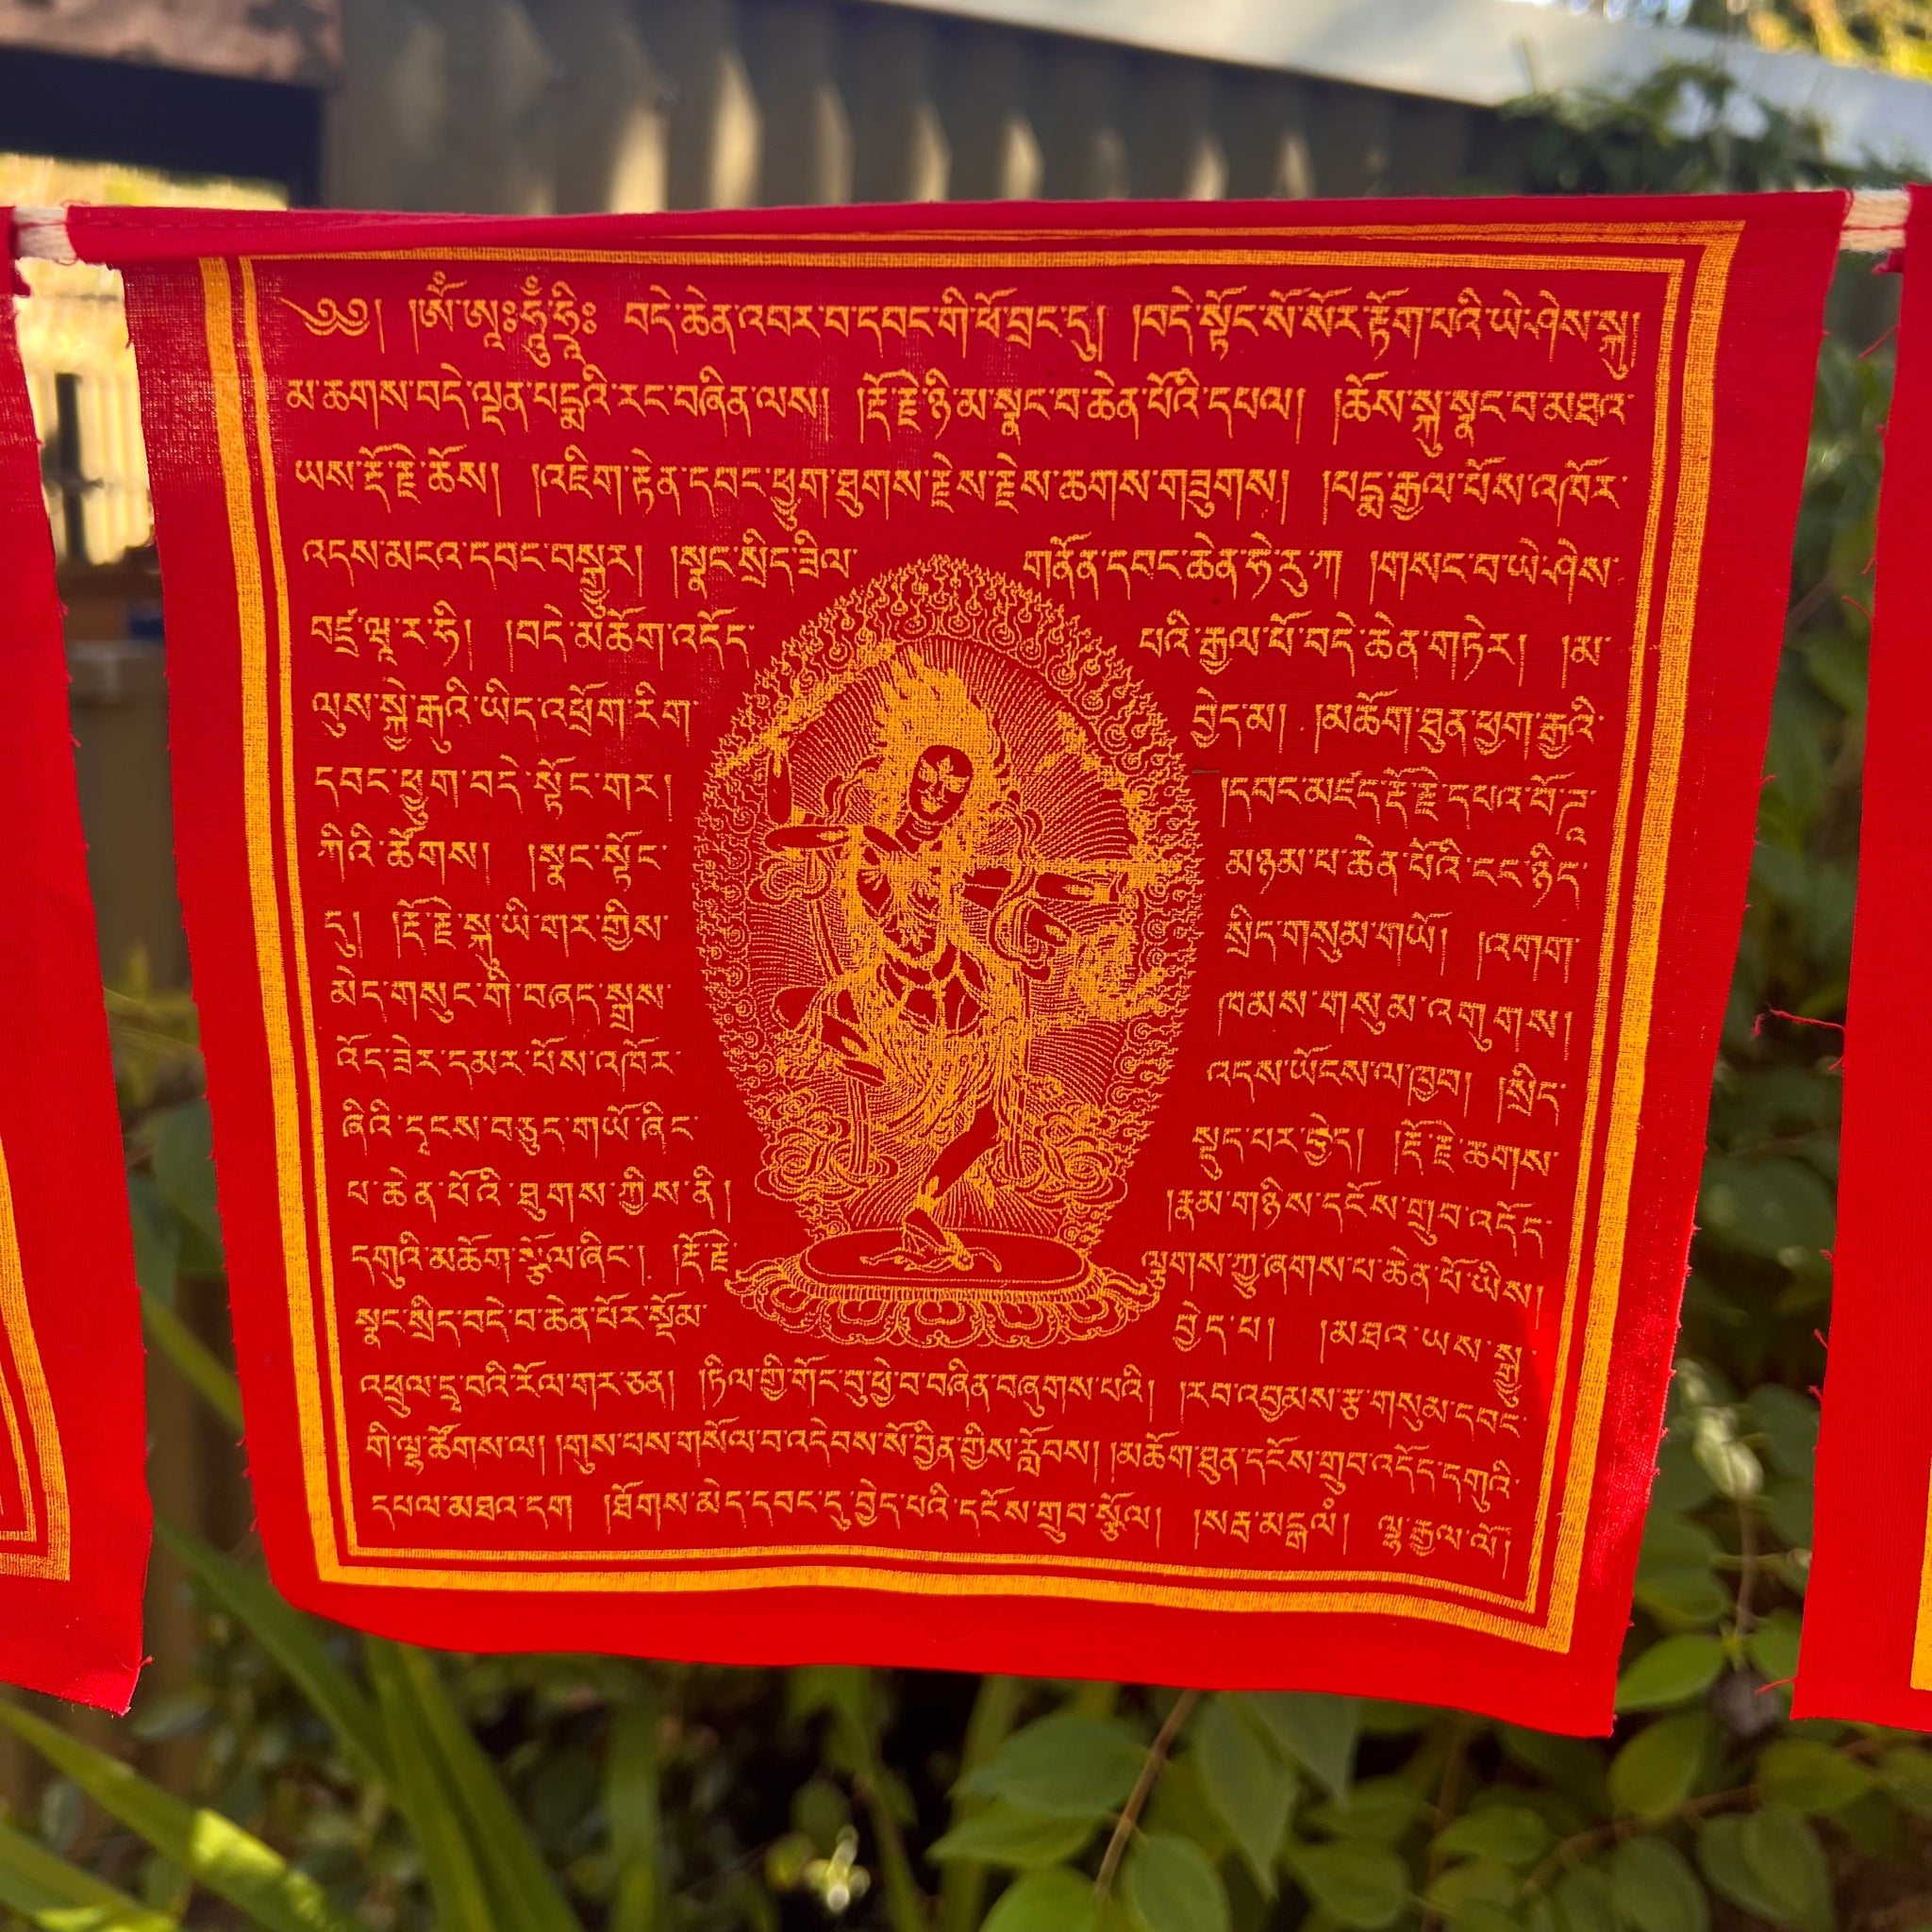 ༄༅། །ཨོཾ་ཨཱཿཧཱུྃ་ཧྲཱིཿ བདེ་ཆེན་འབར་བ་དབང་གི་ཕོ་བྲང་དུ། །བདེ་སྟོང་སོ་སོར་རྟོག་པའི་ཡེ་ཤེས་སྐུ།
མ་ཆགས་བདེ་ལྡན་པདྨའི་རང་བཞིན་ལས། །རྡོ་རྗེ་ཉི་མ་སྣང་བ་ཆེན་པོའི་དཔལ། །ཆོས་སྐུ་སྣང་བ་མཐའ་
ཡས་རྡོ་རྗེ་ཆོས། །འཇིག་རྟེན་དབང་ཕྱུག་ཐུགས་རྗེས་རྗེས་ཆགས་གཟུགས། །པདྨ་རྒྱལ་པོས་འཁོར་
འདས་མངའ་དབང་བསྒྱུར། །སྣང་སྲིད་ཟིལ་ གནོན་དབང་ཆེན་ཧེ་རུ་ཀ །གསང་བ་ཡེ་ཤེས་
བཛྲ་ཝཱ་ར་ཧི། །བདེ་མཆོག་འདོད་ པའི་རྒྱལ་པོ་བདེ་ཆེན་གཏེར། །མ་
ལུས་སྐྱེ་རྒུའི་ཡིད་འཕྲོག་རིག་ བྱེད་མ། །མཆོག་ཐུན་ཕྱག་རྒྱའི་
དབང་ཕྱུག་བདེ་སྟོང་གར། །དབང་མཛད་རྡོ་རྗེ་དཔའ་བོ་ཌཱ་
ཀིའི་ཚོགས། །སྣང་སྟོང་ མཉམ་པ་ཆེན་པོའི་ངང་ཉིད་
དུ། །རྡོ་རྗེ་སྐུ་ཡི་གར་གྱིས་ སྲིད་གསུམ་གཡོ། །འགག་
མེད་གསུང་གི་བཞད་སྒྲས་ ཁམས་གསུམ་འགུགས།
འོད་ཟེར་དམར་པོས་འཁོར་ འདས་ཡོངས་ལ་ཁྱབ། །སྲིད་
ཞིའི་དྭངས་བཅུད་གཡོ་ཞིང་ སྡུད་པར་བྱེད། །རྡོ་རྗེ་ཆགས་
པ་ཆེན་པོའི་ཐུགས་ཀྱིས་ནི། །རྣམ་གཉིས་དངོས་གྲུབ་འདོད་
དགུའི་མཆོག་སྩོལ་ཞིང་། །རྡོ་རྗེ་ ལྕགས་ཀྱུ་ཞགས་པ་ཆེན་པོ་ཡིས།
སྣང་སྲིད་བདེ་བ་ཆེན་པོར་སྡོམ་ བྱེད་པ། །མཐའ་ཡས་སྒྱུ་
འཕྲུལ་དྲྭ་བའི་རོལ་གར་ཅན། །ཏིལ་གྱི་གོང་བུ་ཕྱེ་བ་བཞིན་བཞུགས་པའི། །རབ་འབྱམས་རྩ་གསུམ་དབང་
གི་ལྷ་ཚོགས་ལ། །གུས་པས་གསོལ་བ་འདེབས་སོ་བྱིན་གྱིས་རློབས། །མཆོག་ཐུན་དངོས་གྲུབ་འདོད་དགུའི་
དཔལ་མཐའ་དག །ཐོགས་མེད་དབང་དུ་བྱེད་པའི་དངོས་གྲུབ་སྩོལ། །སརྦ་མངྒལཾ། ལྷ་རྒྱལ་ལོ།